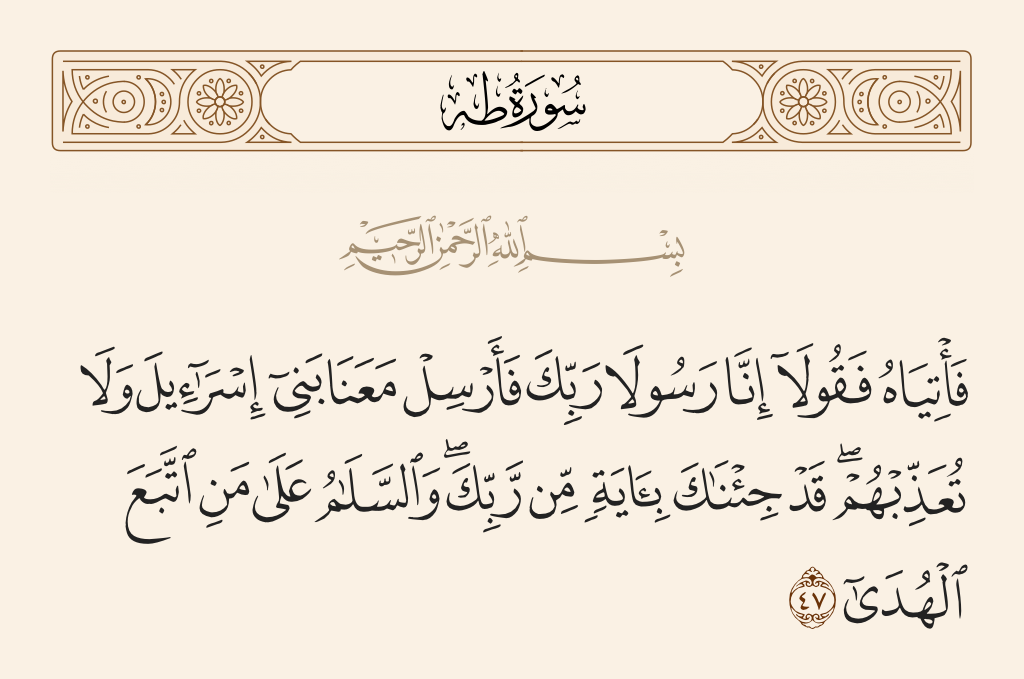 سُورَةُ طه
بِسْمِ ٱللَّهِ ٱلرَّحْمَٰنِ ٱلرَّحِيمِ
فَأْتِيَاهُ فَقُولَآ إِنَّا رَسُولَا رَبِّكَ فَأَرْسِلْ مَعَنَا بَنِىٓ إِسْرَٰٓءِيلَ وَلَا
تُعَذِّبْهُمْ ۖ قَدْ جِئْنَٰكَ بِـَٔايَةٍ مِّن رَّبِّكَ ۖ وَٱلسَّلَٰمُ عَلَىٰ مَنِ ٱتَّبَعَ
ٱلْهُدَىٰٓ ٤٧